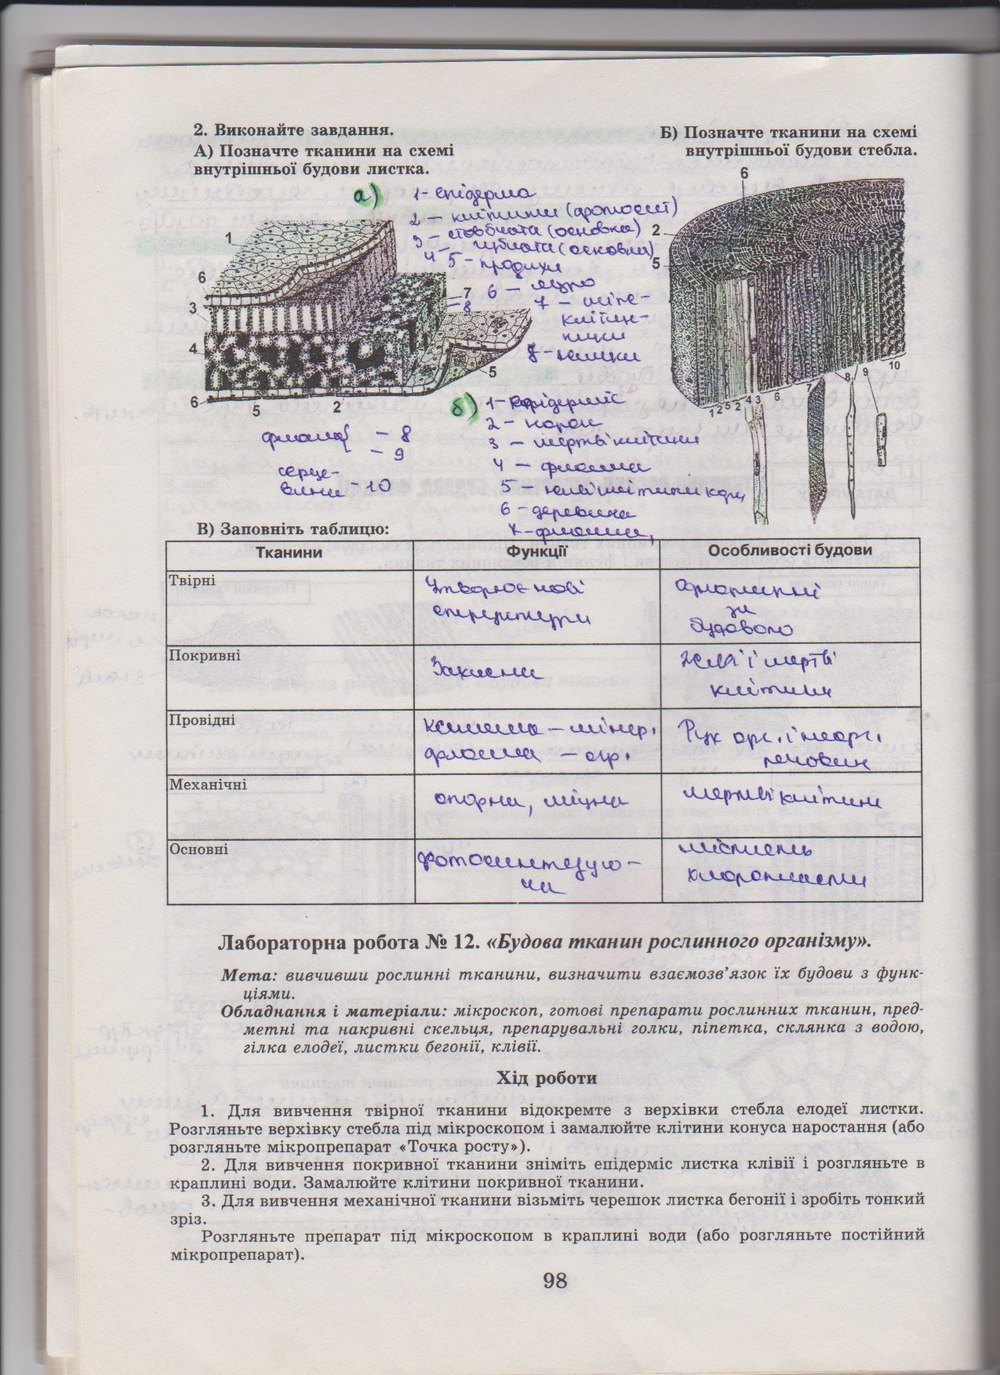 2. Виконайте завдання.
А) Позначте тканини на схемі
внутрішньої будови листка.
Б) Позначте тканини на схемі
внутрішньої будови стебла.
а)
1- епідерма
2 – клітини (фотосинт)
3 – стовбчата (основна)
4 – губчата (основна)
5 – продихи
6 –
7 –
клітин-
ники
8-
1
6
3
4
6
5
2
7
8
5
6
2
5
1 2 5 2 4 3 6 7 8 9 10
б)
1- епідерміс
2 – корок
3 – мертві клітини
4 – флоема
5 – живі клітини кори
6 – деревина
7 – флоема,
флоема{ – 8
– 9
серце-
вина – 10
В) Заповніть таблицю:
Тканини Функції Особливості будови
Твірні
Утворює нові
структури
однотипні
за
будовою
Покривні
Захисна
Живі і мертві
клітини
Провідні
ксилема – мінер.
флоема – огр.
Рух орг. і неорг.
речовин
Механічні
опорна, міцна
мертві клітини
Основні
Фотосинтезую-
ча
містять
хлоропласти
Лабораторна робота № 12. «Будова тканин рослинного організму».
Мета: вивчивши рослинні тканини, визначити взаємозв’язок їх будови з функ-
ціями.
Обладнання і матеріали: мікроскоп, готові препарати рослинних тканин, пред-
метні та накривні скельця, препарувальні голки, піпетка, склянка з водою,
гілка елодеї, листки бегонії, клівії.
Хід роботи
1. Для вивчення твірної тканини відокремте з верхівки стебла елодеї листки.
Розгляньте верхівку стебла під мікроскопом і замалюйте клітини конуса наростання (або
розгляньте мікропрепарат «Точка росту»).
2. Для вивчення покривної тканини зніміть епідерміс листка клівії і розгляньте в
краплині води. Замалюйте клітини покривної тканини.
3. Для вивчення механічної тканини візьміть черешок листка бегонії і зробіть тонкий
зріз.
Розгляньте препарат під мікроскопом в краплині води (або розгляньте постійний
мікропрепарат).
98